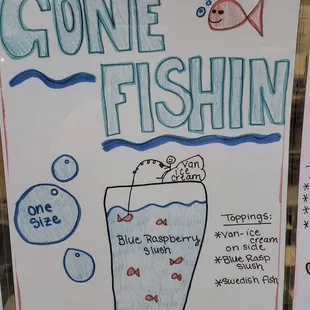 GONE
FISHIN
van
ice
cream
one
Size
Blue Raspberry
Slush
Toppings:
*van-ice
cream
on side
*Blue Rasp
Slush
*Swedish fish